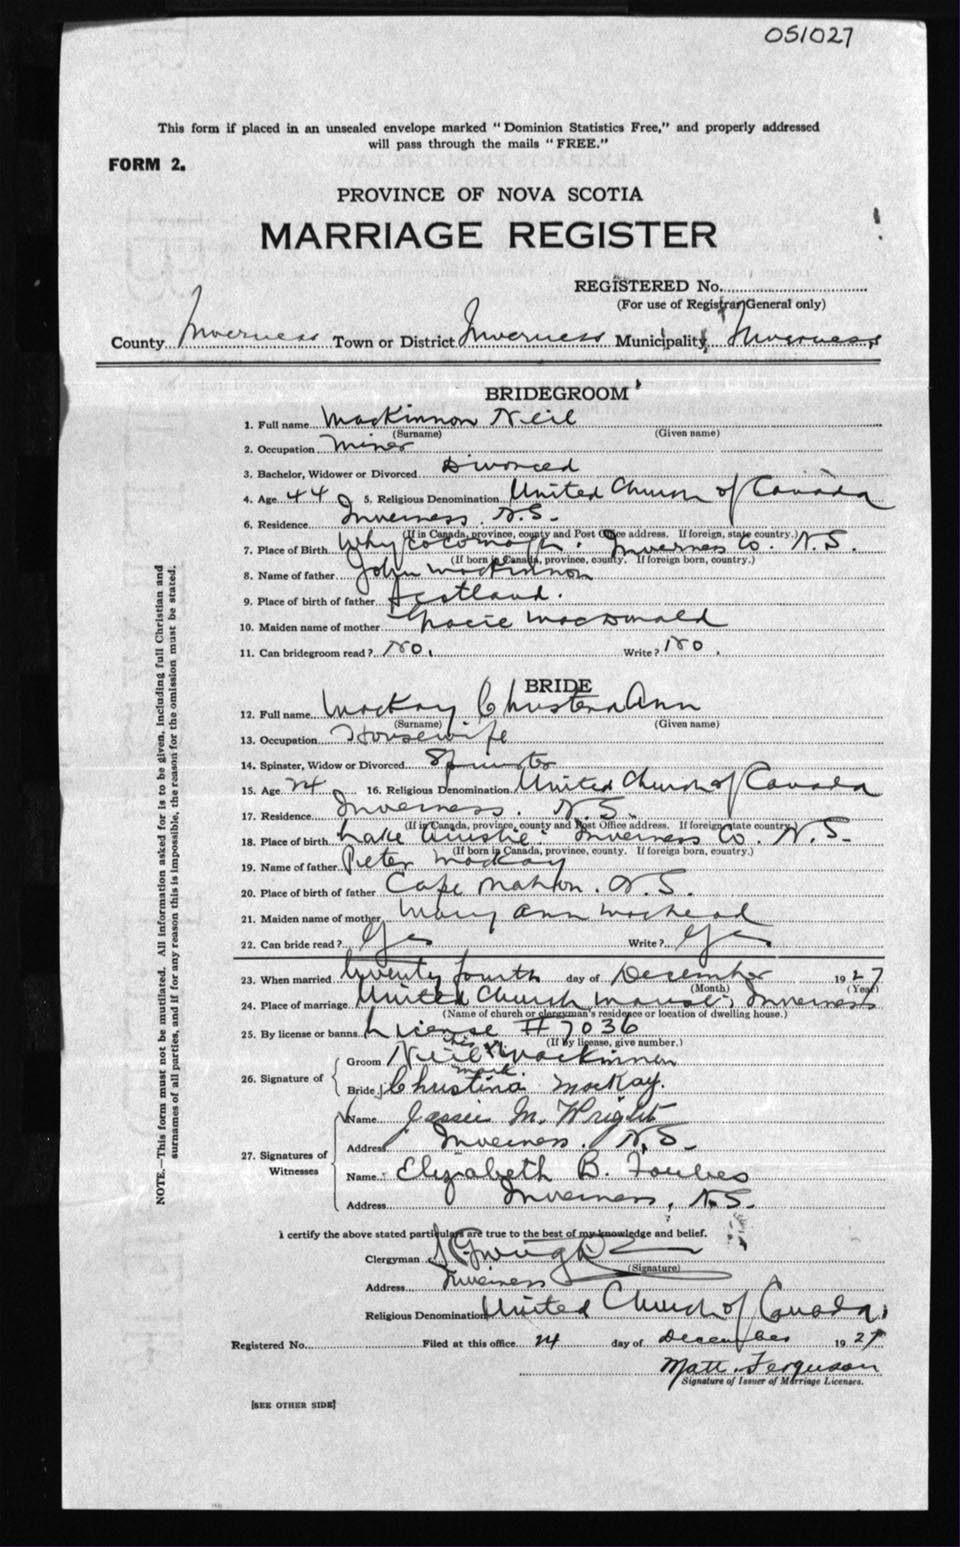 051027
This form if placed in an unsealed envelope marked "Dominion Statistics Free," and properly addressed
will pass through the mails "FREE."
FORM 2.
PROVINCE OF NOVA SCOTIA
MARRIAGE REGISTER
REGISTERED No.
(For use of Registrar General only)
County Inverness Town or District Inverness Municipality Inverness
BRIDEGROOM
1. Full name MacKinnon Neil
(Surname) (Given name)
2. Occupation Miner
3. Bachelor, Widower or Divorced Divorced
4. Age 44 5. Religious Denomination United Church of Canada
6. Residence Inverness. N.S.
(If in Canada, province, county and Post Office address. If foreign, state country.)
7. Place of Birth Whycocomagh. Inverness Co. N.S.
(If born in Canada, province, county. If foreign born, country.)
8. Name of father John MacKinnon
9. Place of birth of father Scotland.
10. Maiden name of mother MacDonald
11. Can bridegroom read? No. Write? No.
BRIDE
12. Full name MacKay Christena Ann
(Surname) (Given name)
13. Occupation Housewife
14. Spinster, Widow or Divorced Spinster
15. Age 24 16. Religious Denomination United Church of Canada
17. Residence Inverness. N.S.
(If in Canada, province, county and Post Office address. If foreign state country)
18. Place of birth Lake Ainslie. Inverness Co. N.S.
(If born in Canada, province, county. If foreign born, country.)
19. Name of father Peter MacKay
20. Place of birth of father Cape Mabou. N.S.
21. Maiden name of mother Mary Ann
22. Can bride read? Yes Write? Yes
23. When married twenty fourth day of December 1927
(Month) (Year)
24. Place of marriage United Church Manse, Inverness
(Name of church or clergyman's residence or location of dwelling house.)
25. By license or banns License #7036
(If by license, give number.)
26. Signature of
his
Groom Neil X MacKinnon
mark.
Bride Christina MacKay.
27. Signatures of Witnesses
Name Jassie M. Wright
Address Inverness. N.S.
Name Elizabeth B. Forbes
Address Inverness, N.S.
I certify the above stated particulars are true to the best of my knowledge and belief.
Clergyman
(Signature)
Address Inverness
Religious Denomination United Church of Canada
Registered No. Filed at this office 24 day of December 1927
Matt. Ferguson
Signature of Issuer of Marriage Licenses.
[SEE OTHER SIDE]
NOTE.—This form must not be mutilated. All information asked for is to be given, including full Christian and
surnames of all parties, and if for any reason this is impossible, the reason for the omission must be stated.